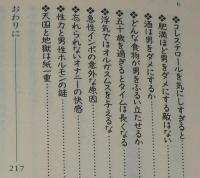 6
コレステロールを気にしすぎると
肥満ほど男をダメにする敵はない
酒は男をダメにするか
どんな食物が男をふるい立たせるか
五十歳を過ぎるとタイムは長くなる
浮気ではオルガスムスを与えるな
急性インポの意外な原因
忘れられないオナニーの快感
性力と男性ホルモンの謎
天国と地獄は紙一重
おわりに
217